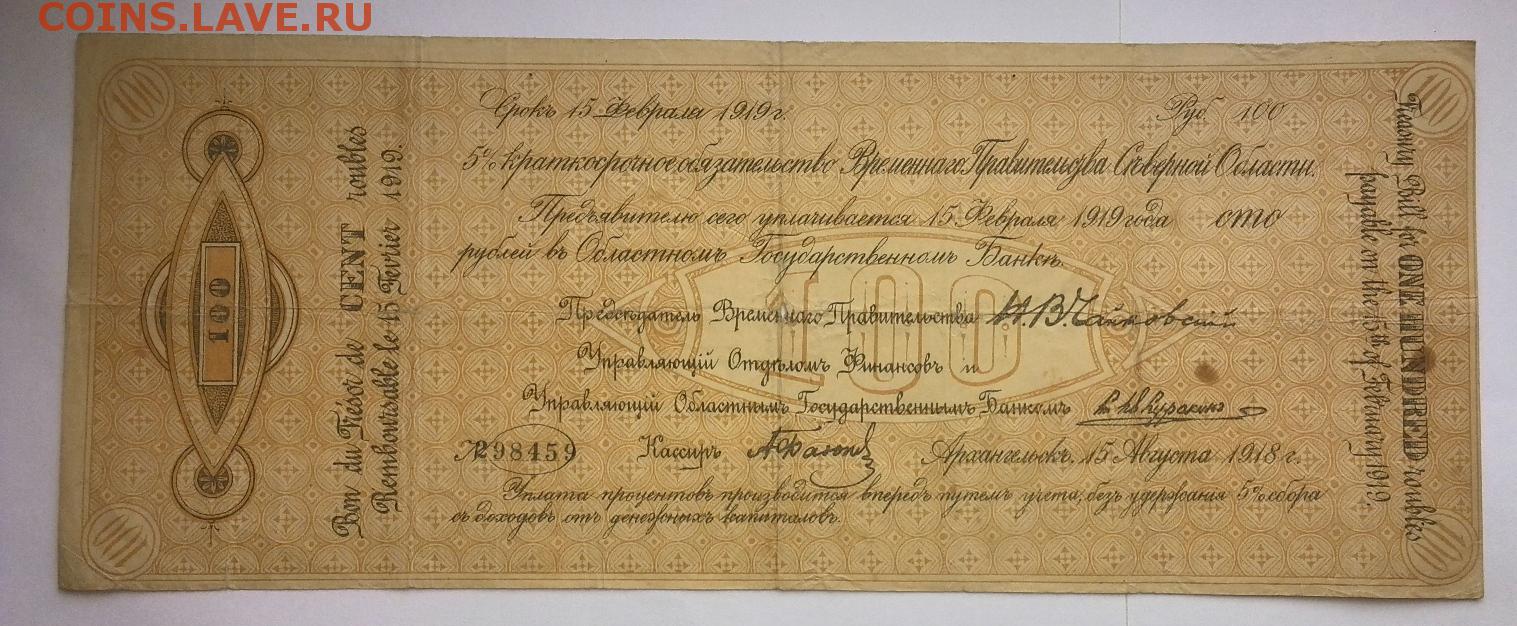 COINS.LAVE.RU
100
Bon du Trésor de CENT roubles
Remboursable le 15 Fevrier 1919.
Срокъ 15 Февраля 1919 г.
Руб. 100
5% краткосрочное обязательство Временнаго Правительства Сѣверной Области.
Предъявителю сего уплачивается 15 Февраля 1919 года сто
рублей въ Областномъ Государственномъ Банкѣ.
100
Предсѣдатель Временнаго Правительства Н.В. Чайковскій
Управляющій Отдѣломъ Финансовъ и
Управляющій Областнымъ Государственнымъ Банкомъ
№ 298459
Кассиръ
Архангельскъ, 15 Августа 1918 г.
Уплата процентовъ производится впередъ путемъ учета, безъ удержания 5% сбора
съ доходовъ отъ денежныхъ капиталовъ.
Treasury Bill for ONE HUNDRED roubles
payable on the 15th of February 1919.
100
100
100
100